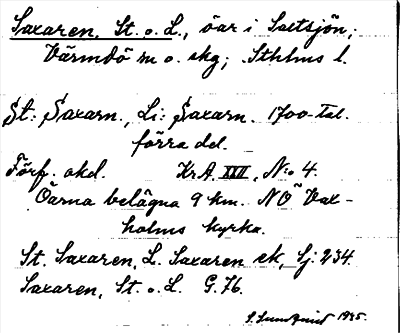 Saxaren, St. o. L., öar i Saltsjön,
Värmdö m. o. skg; Sthlms l.
St: Saxarn, Li: Saxarn. 1700-tal.
förra del.
Förf. okd. Kr.A. XXII, N:o 4.
Öarna belägna 9 km. NO Vax-
holms kyrka.
St. Saxaren, L. Saxaren ek, Sj: 234.
Saxaren, St. o. L. G. 76.
1945.